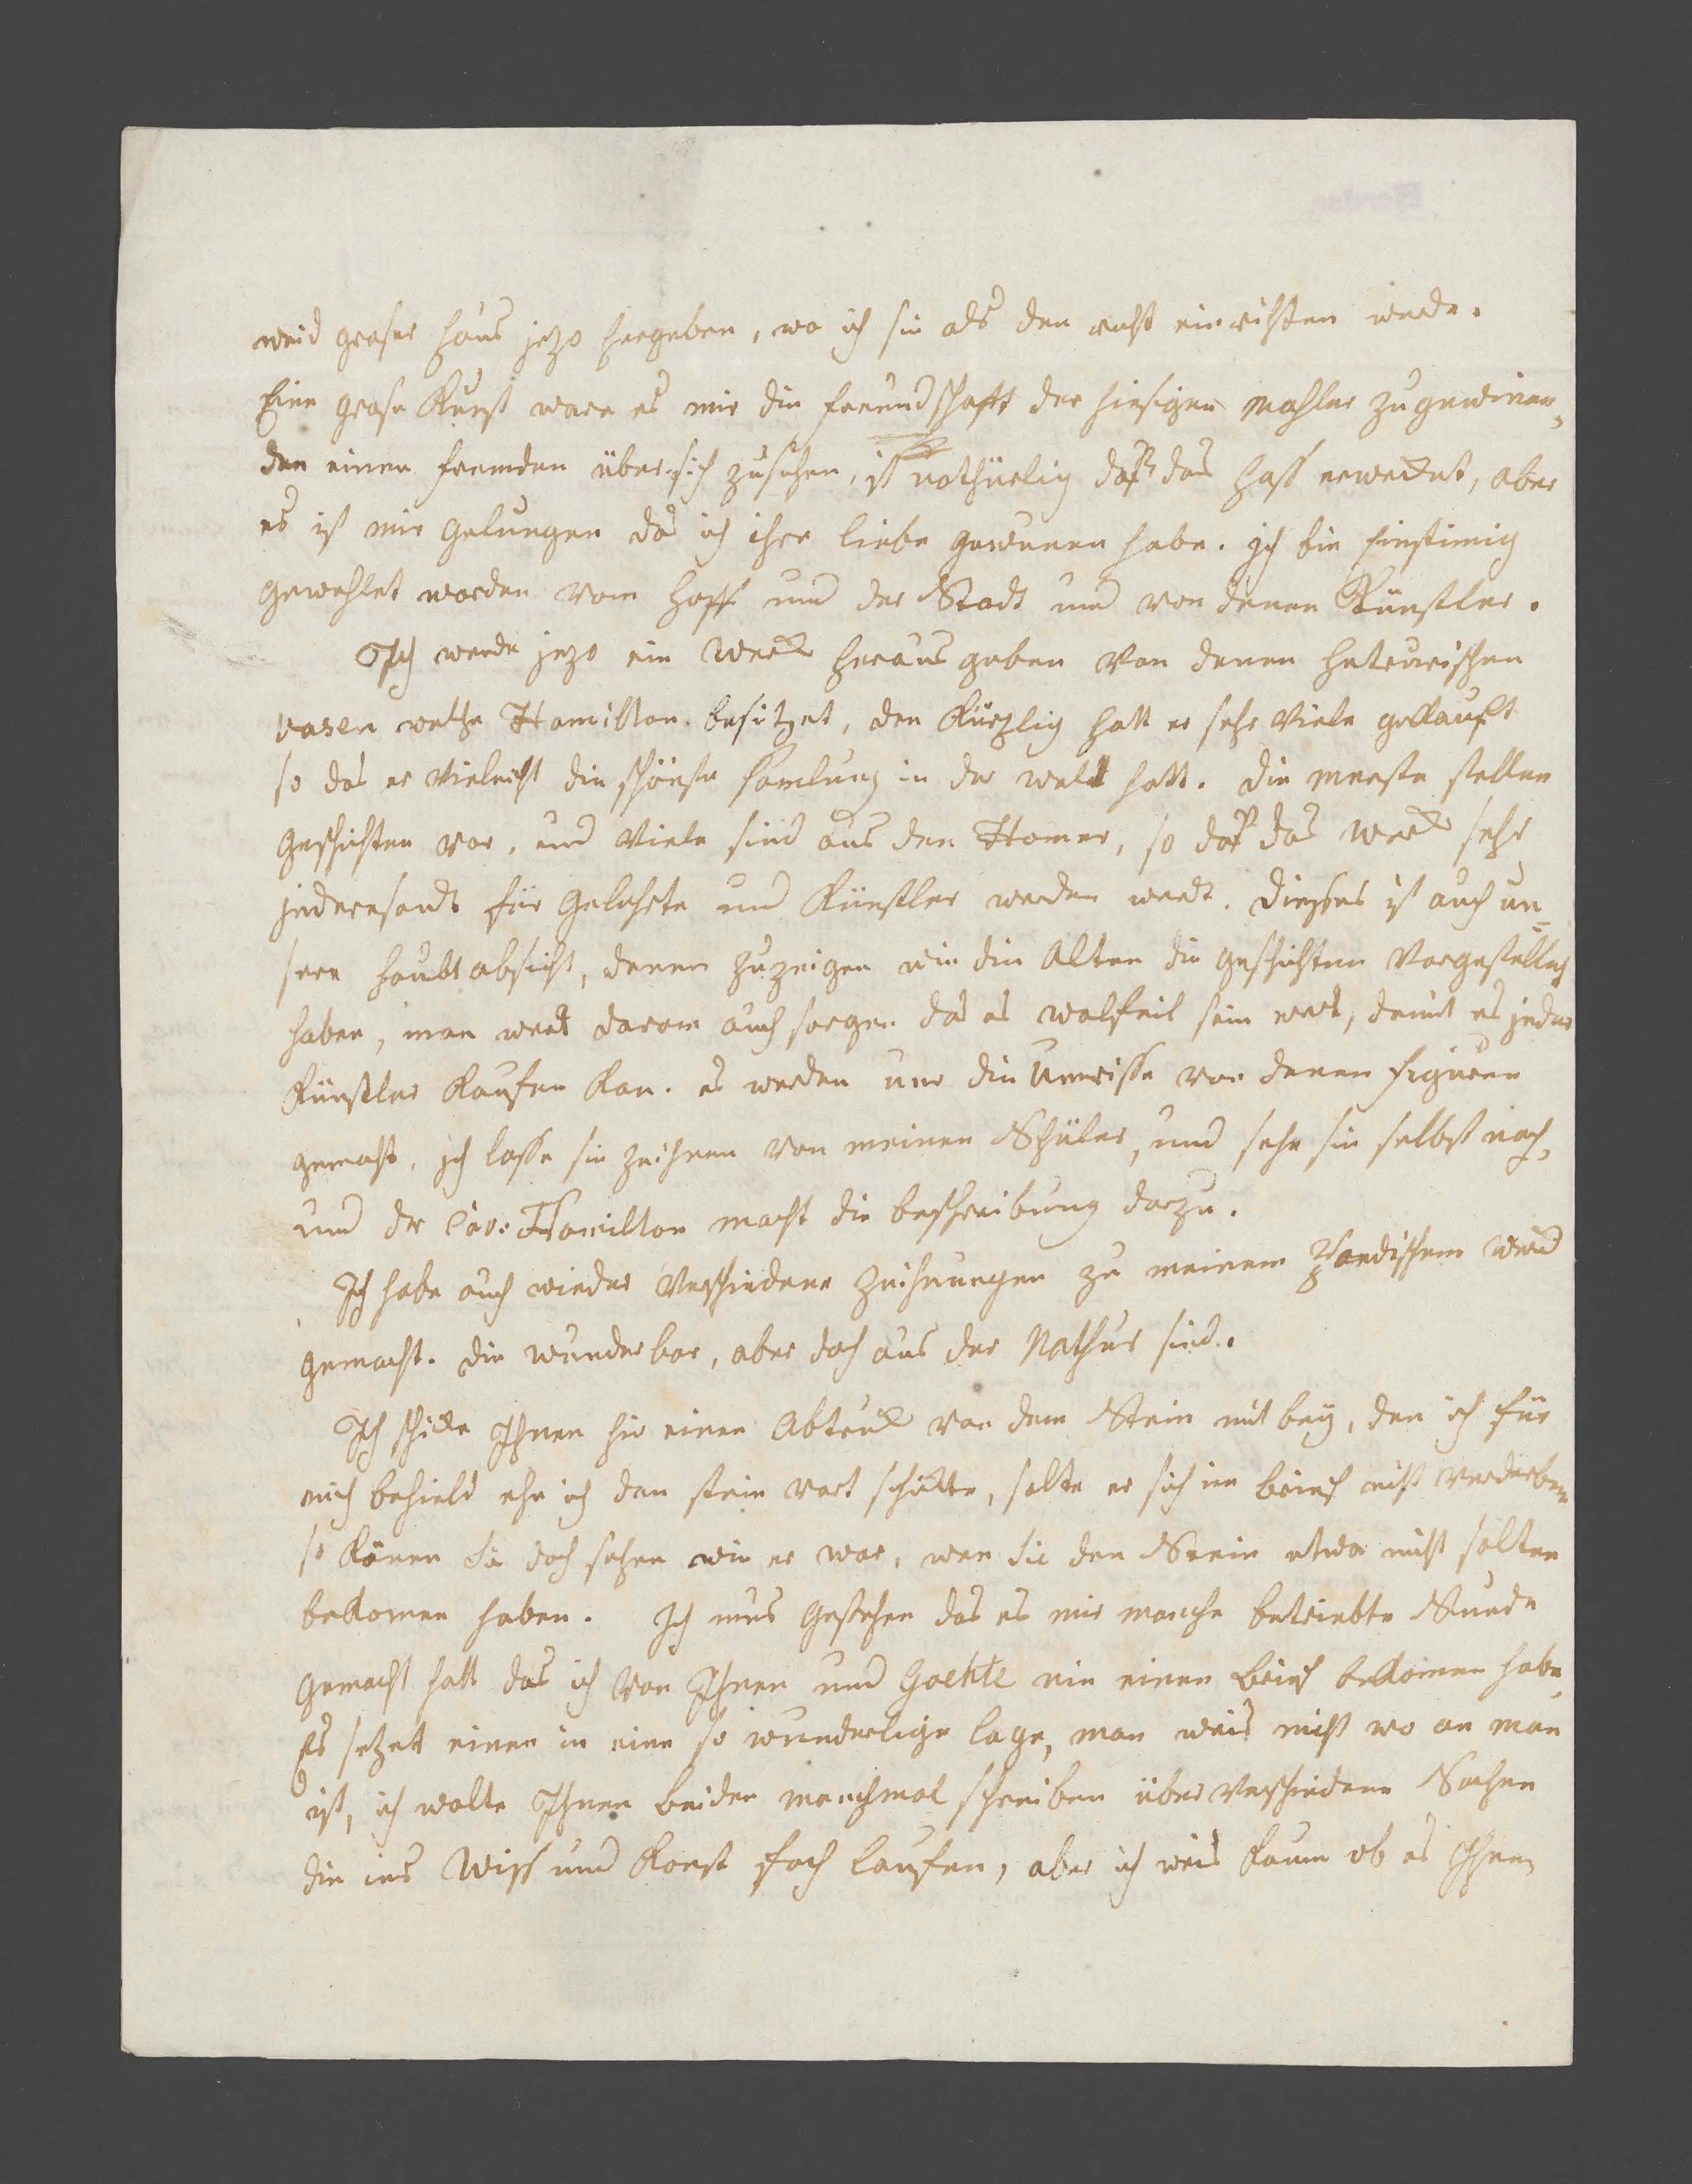 weid groser haus jezo hergeben, wo ich sie als den recht einrichten werde.
Eine grose Kunst ware es mir die freundschafft der hiesigen Mahler zu gewinen,
den einen fremden über sich zusehen, ist nothürlig daß das Haß erwecket, aber
es ist mir gelungen das ich ihre liebe gewunen habe. ich bin Einstimig
gewehlet worden vom Hoff und der Stadt und von denen Künstler.
Ich werde jezo ein Werck heraus geben von denen heterurischen
vasen welche Hamilton besitzet, den Kürzlig hatt er sehr viele gekauft
so das er vieleicht die schönste samlung in der welt hatt. die meeste stellen
geschichten vor, und viele sind aus den Homer, so daß das Werck sehr
inderesandt für Gelehrte und Künstler werden werdt. dießes ist auch un=
sere haubt absicht, denen zu zeigen wie die Alten die geschichten vorgestellet
haben, man werdt darom auch sorgen das es wolfeil sein werd, damit es jeder
Künstler Kaufen Kan. es werden nur die Umrisse von denen figuren
gemacht, ich lasse sie zeichnen von meinen Schüler, und sehe sie selbst nach,
und der Cav: Hamilton macht die beschreibung darzu.
Ich habe auch wieder verschiedene Zeichnungen zu meinem Werck
gemacht. die wunderbar, aber doch aus der Nathur sind.
Ich schicke Ihnen hir einen Abdruck von dem Stein mit bey, den ich für
mich behield ehe ich den stein vort schickte, solte er sich im brief nicht verderben
so Könen Sie doch sehen wie er war, wen Sie den Stein etwa nicht solten
bekomen haben. Ich mus gestehen das es mir manche betriebte Stunde
gemacht hatt das ich von Ihnen und Goehte nie einen Brief bekomen habe,
Es setzet einen in eine so wunderlige lage, man weis nicht wo an man
ist, ich wolte Ihnen beiden manchmal schreiben über verschiedene Sachen
die ins Wiss und Konst fach laufen, aber ich weis kaum ob es Ihnen